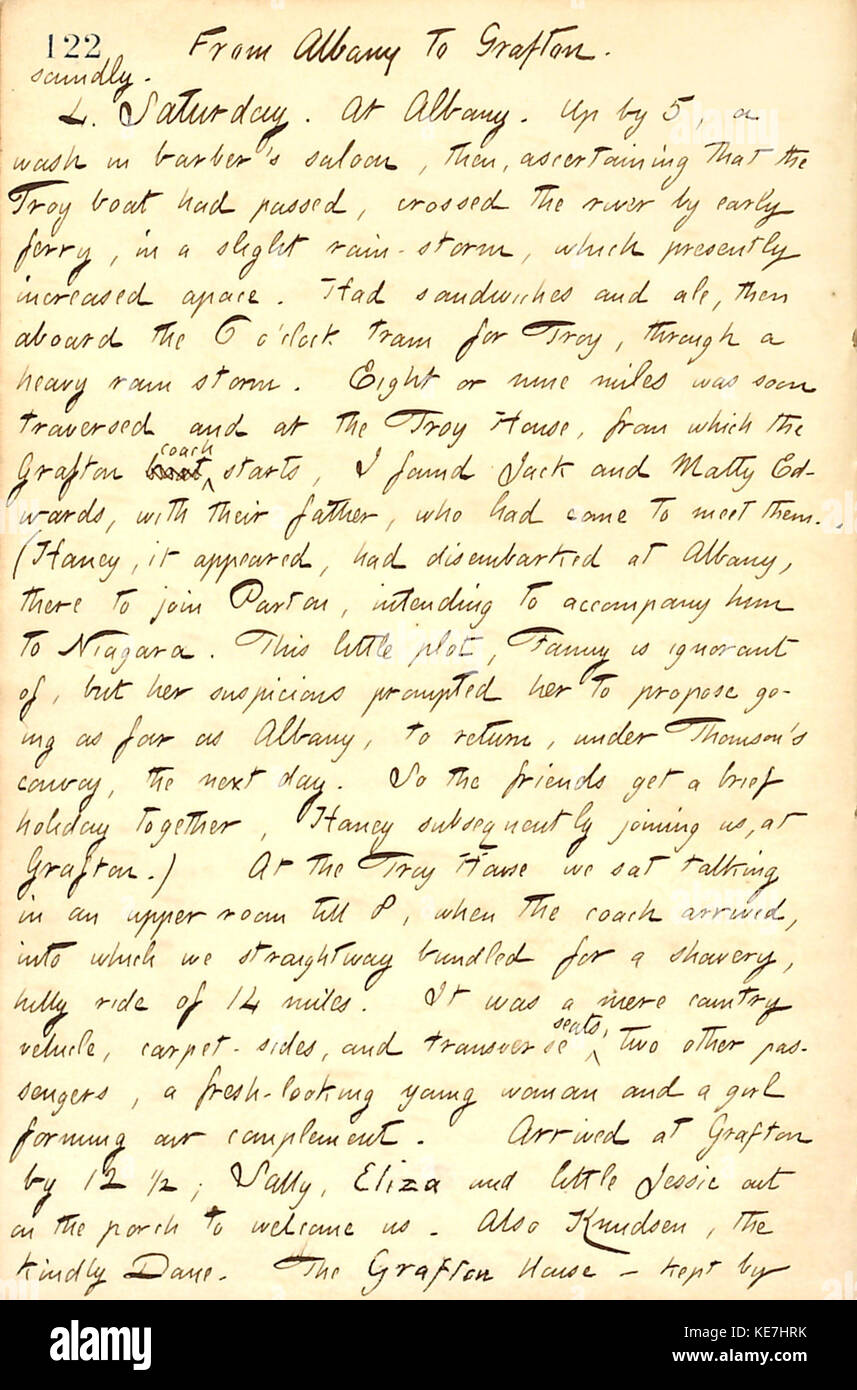 122 From Albany to Grafton.
soundly.
4. Saturday. At Albany. Up by 5, a
wash in barber's saloon, then, ascertaining that the
Troy boat had passed, crossed the river by early
ferry, in a slight rain-storm, which presently
increased apace. Had sandwiches and ale, then
aboard the 6 o'clock train for Troy, through a
heavy rain storm. Eight or nine miles was soon
traversed and at the Troy House, from which the
coach
Grafton boat starts, I found Jack and Matty Ed-
wards, with their father, who had come to meet them.
(Haney, it appeared, had disembarked at Albany,
there to join Parton, intending to accompany him
to Niagara. This little plot, Fanny is ignorant
of, but her suspicions prompted her to propose go-
ing as far as Albany, to return, under Thomson's
convoy, the next day. So the friends get a brief
holiday together, Haney subsequently joining us, at
Grafton.) At the Troy House we sat talking
in an upper room till 8, when the coach arrived,
into which we straightway bundled for a showery,
hilly ride of 14 miles. It was a mere country
seats,
vehicle, carpet-sides, and transverse two other pas-
sengers, a fresh-looking young woman and a girl
forming our complement. Arrived at Grafton
by 12 ½; Sally, Eliza and little Jessie out
on the porch to welcome us. Also Knudsen, the
kindly Dane. The Grafton House — kept by
alamy
Image ID: KE7HRK
www.alamy.com